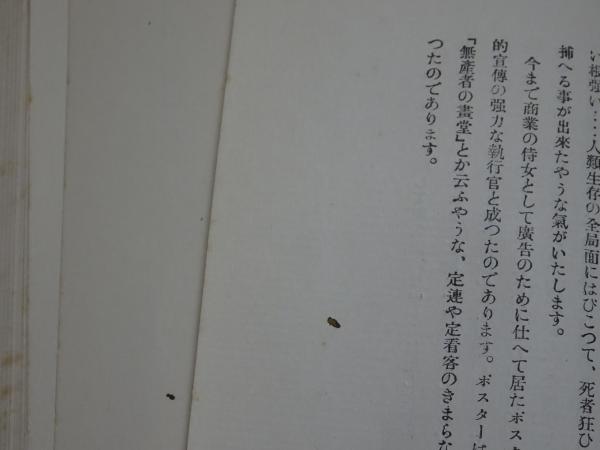 い根強い‥‥人類生存の全局面にはびこつて、死者狂ひ
捕へる事が出來たやうな氣がいたします。
今まで商業の侍女として廣告のために仕へて居たポス
的宣傳の强力な執行官と成つたのであります。ポスターは
「無產者の畫堂」とか云ふやうな、定連や定看客のきまらな
つたのであります。